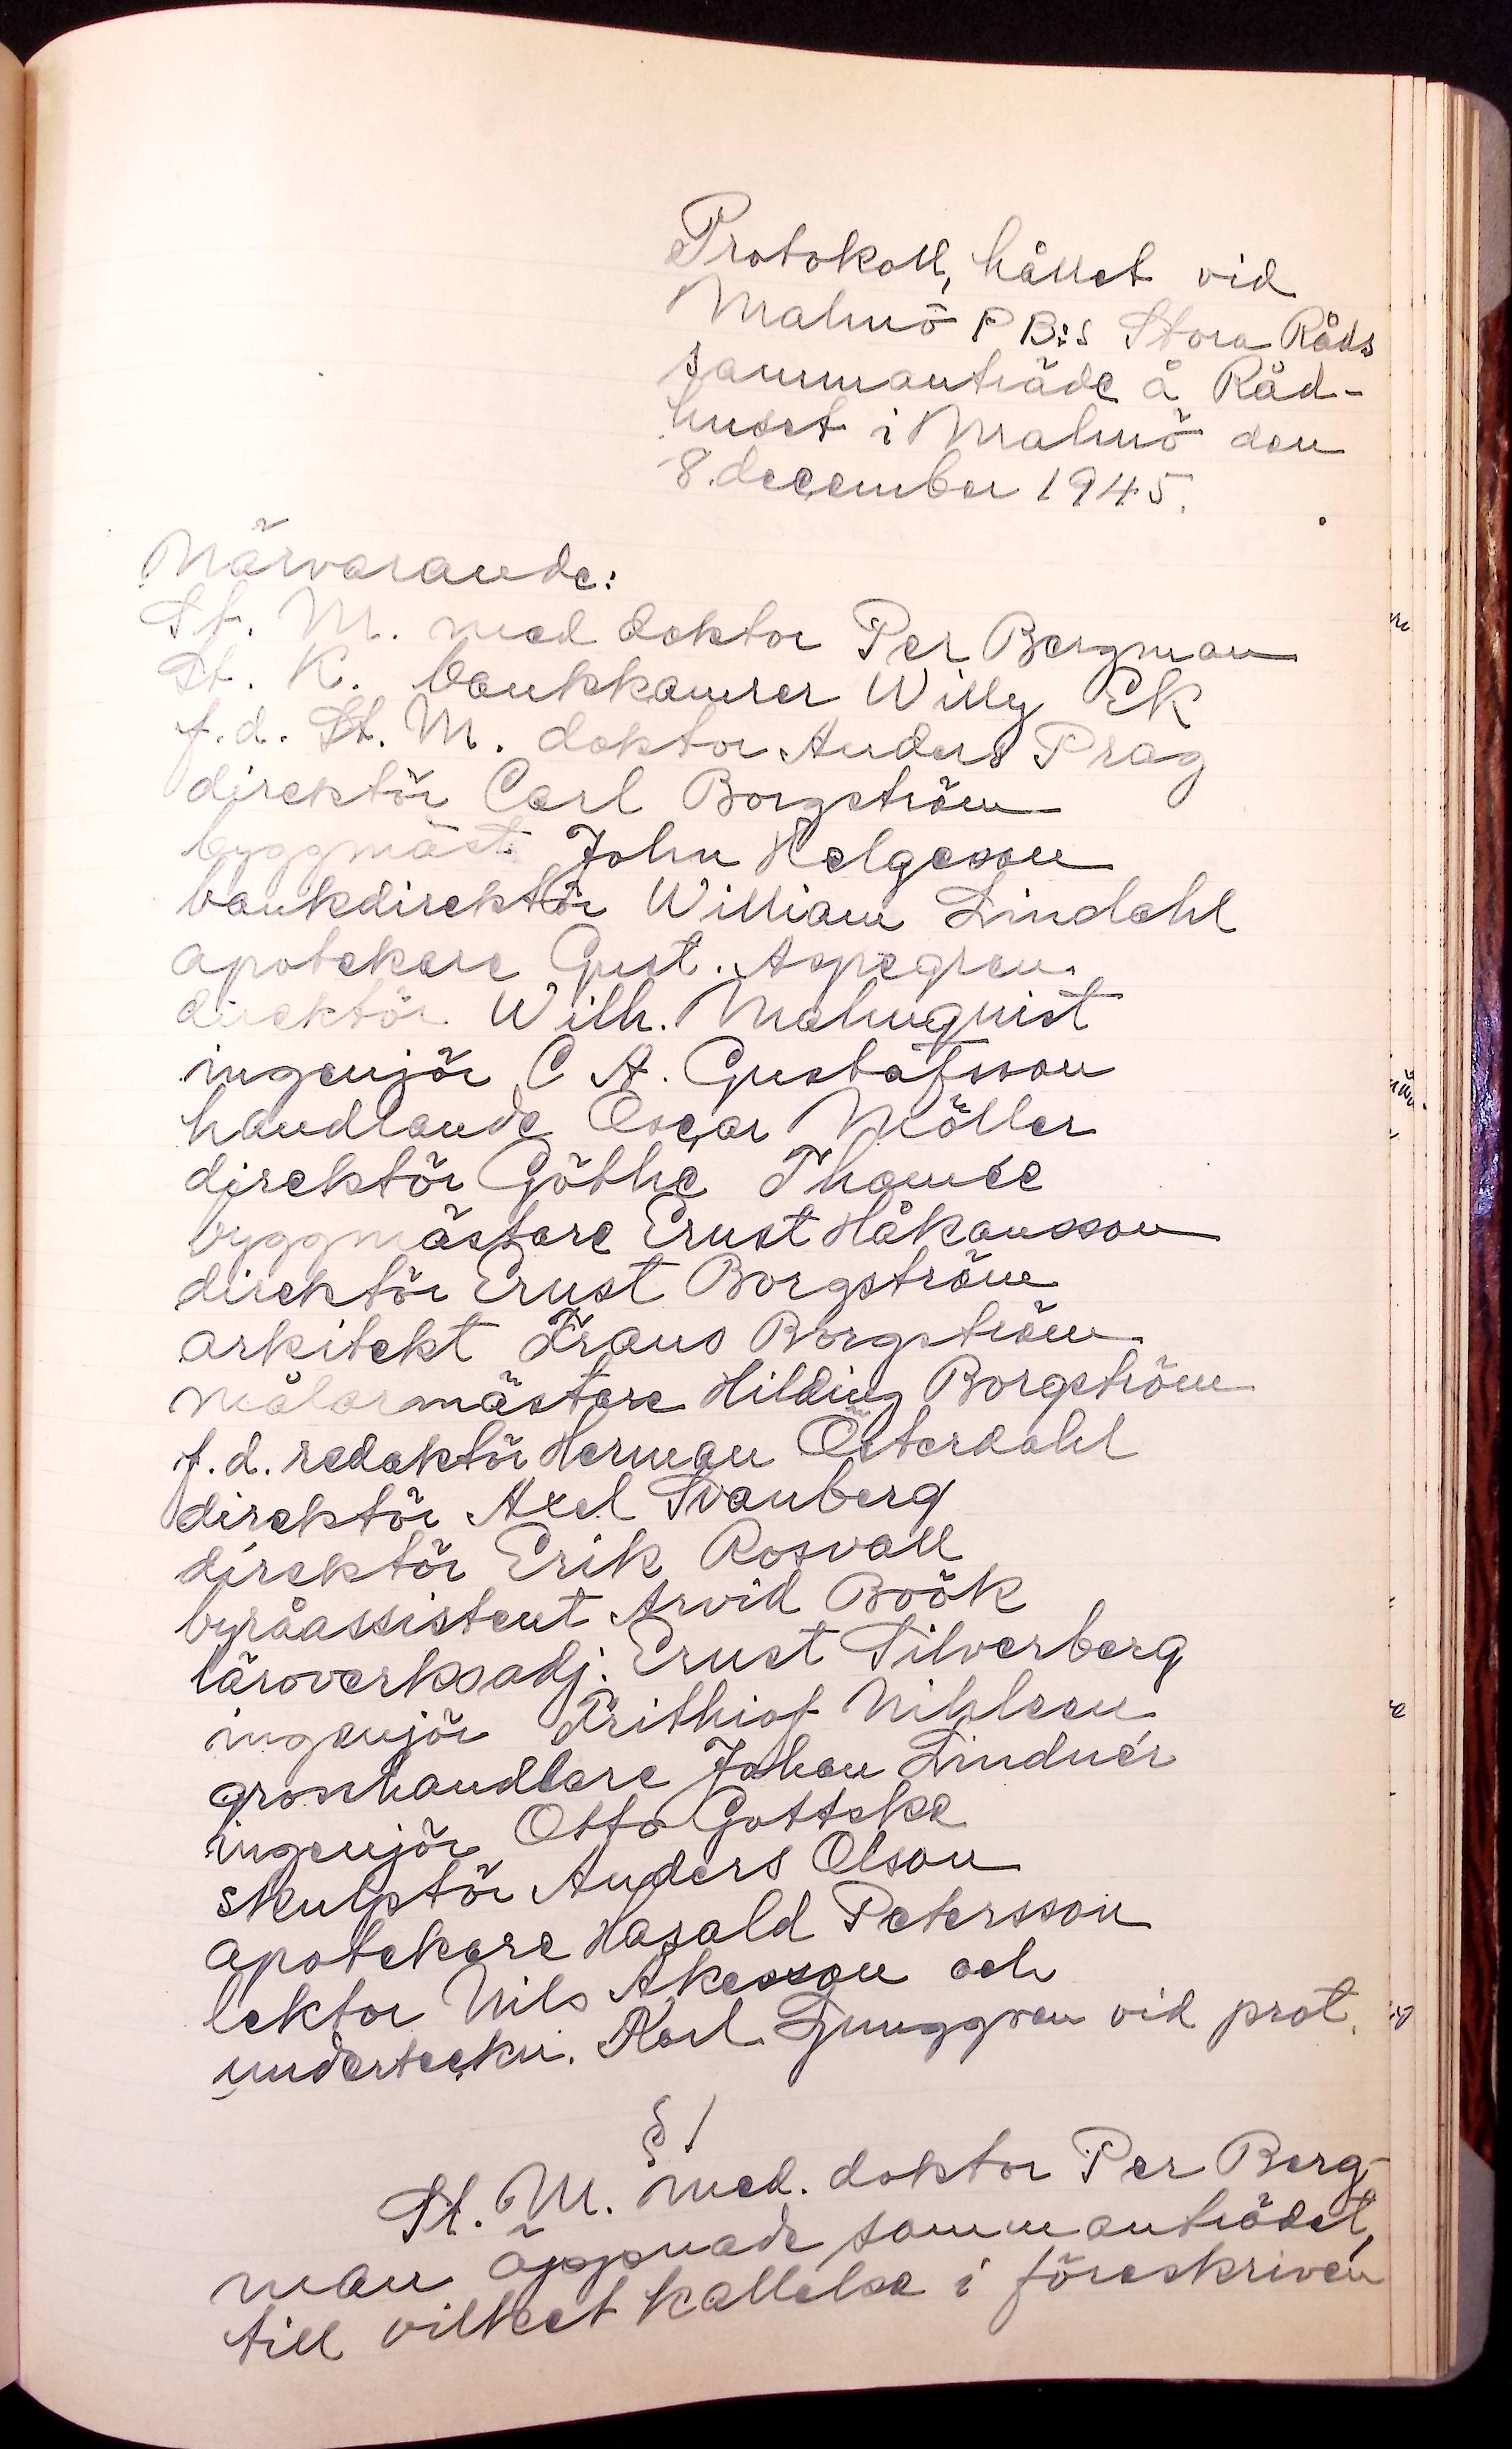 Protokoll, hållet vid
Malmö P B:s Stora Råds
sammanträde å Råd-
huset i Malmö den
8 december 1945.
Närvarande:
St. M. med doktor Per Bergman
St. K. bankkamrer Willy Ek
f.d. St. M. doktor Anders Prag
direktör Carl Borgström
byggmäst. John Helgesson
bankdirektör William Lindahl
apotekare Gust. Aspegren
direktör Wilh. Malmquist
ingenjör C A. Gustafsson
handlande Oscar Möller
direktör Göthe Thomée
byggmästare Ernst Håkansson
direktör Ernst Borgström
arkitekt Frans Borgström
målarmästare Hilding Borgström
f.d. redaktör Herman Österdahl
direktör Axel Svanberg
direktör Erik Rosvall
byråassistent Arvid Böök
läroverksadj. Ernst Silverberg
ingenjör Frithiof Nihleen
grosshandlare Johan Lindnér
ingenjör Otto Gottske
skulptör Anders Olson
apotekare Harald Petersson
lektor Nils Åkesson och
underteckn. Karl Ljunggren vid prot.
§ 1
St. M. med. doktor Per Berg-
man öppnade sammanträdet,
till vilket kallelse i föreskriven